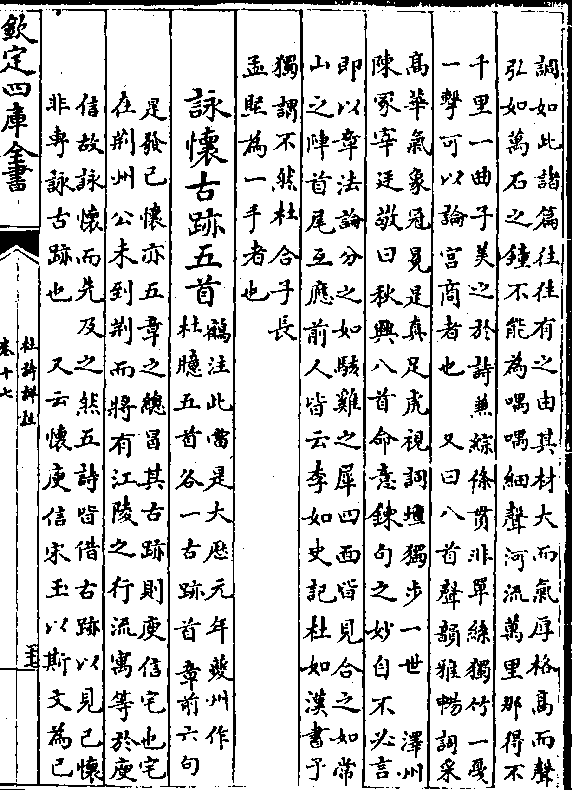 調如此諸篇往往有之由其材大而氣厚格高而聲
弘如萬石之鐘不能為喁喁細聲河流萬里那得不
千里一曲子美之於詩兼綜條貫非單絲獨竹一戞
一擊可以論宮商者也　又曰八首聲韻雅暢詞采
高華氣象冠冕是真足虎視詞壇獨步一世　澤州
陳冢宰廷敬曰秋興八首命意鍊句之妙自不必言
即以章法論分之如駭雞之犀四面皆見合之如常
山之陣首尾互應前人皆云李如史記杜如漢書予
獨謂不然杜合子長
孟堅為一手者也
詠懷古跡五首
鶴注此當是大厯元年夔州作
杜臆五首各一古跡首章前六句
是發己懷亦五章之總冒其古跡則庾信宅也宅
在荆州公未到荆而將有江陵之行流寓等於庾
信故詠懷而先及之然五詩皆借古跡以見己懷
非專詠古跡也　又云懷庾信宋玉以斯文為己
欽定四庫全書
杜詩詳註
卷十七